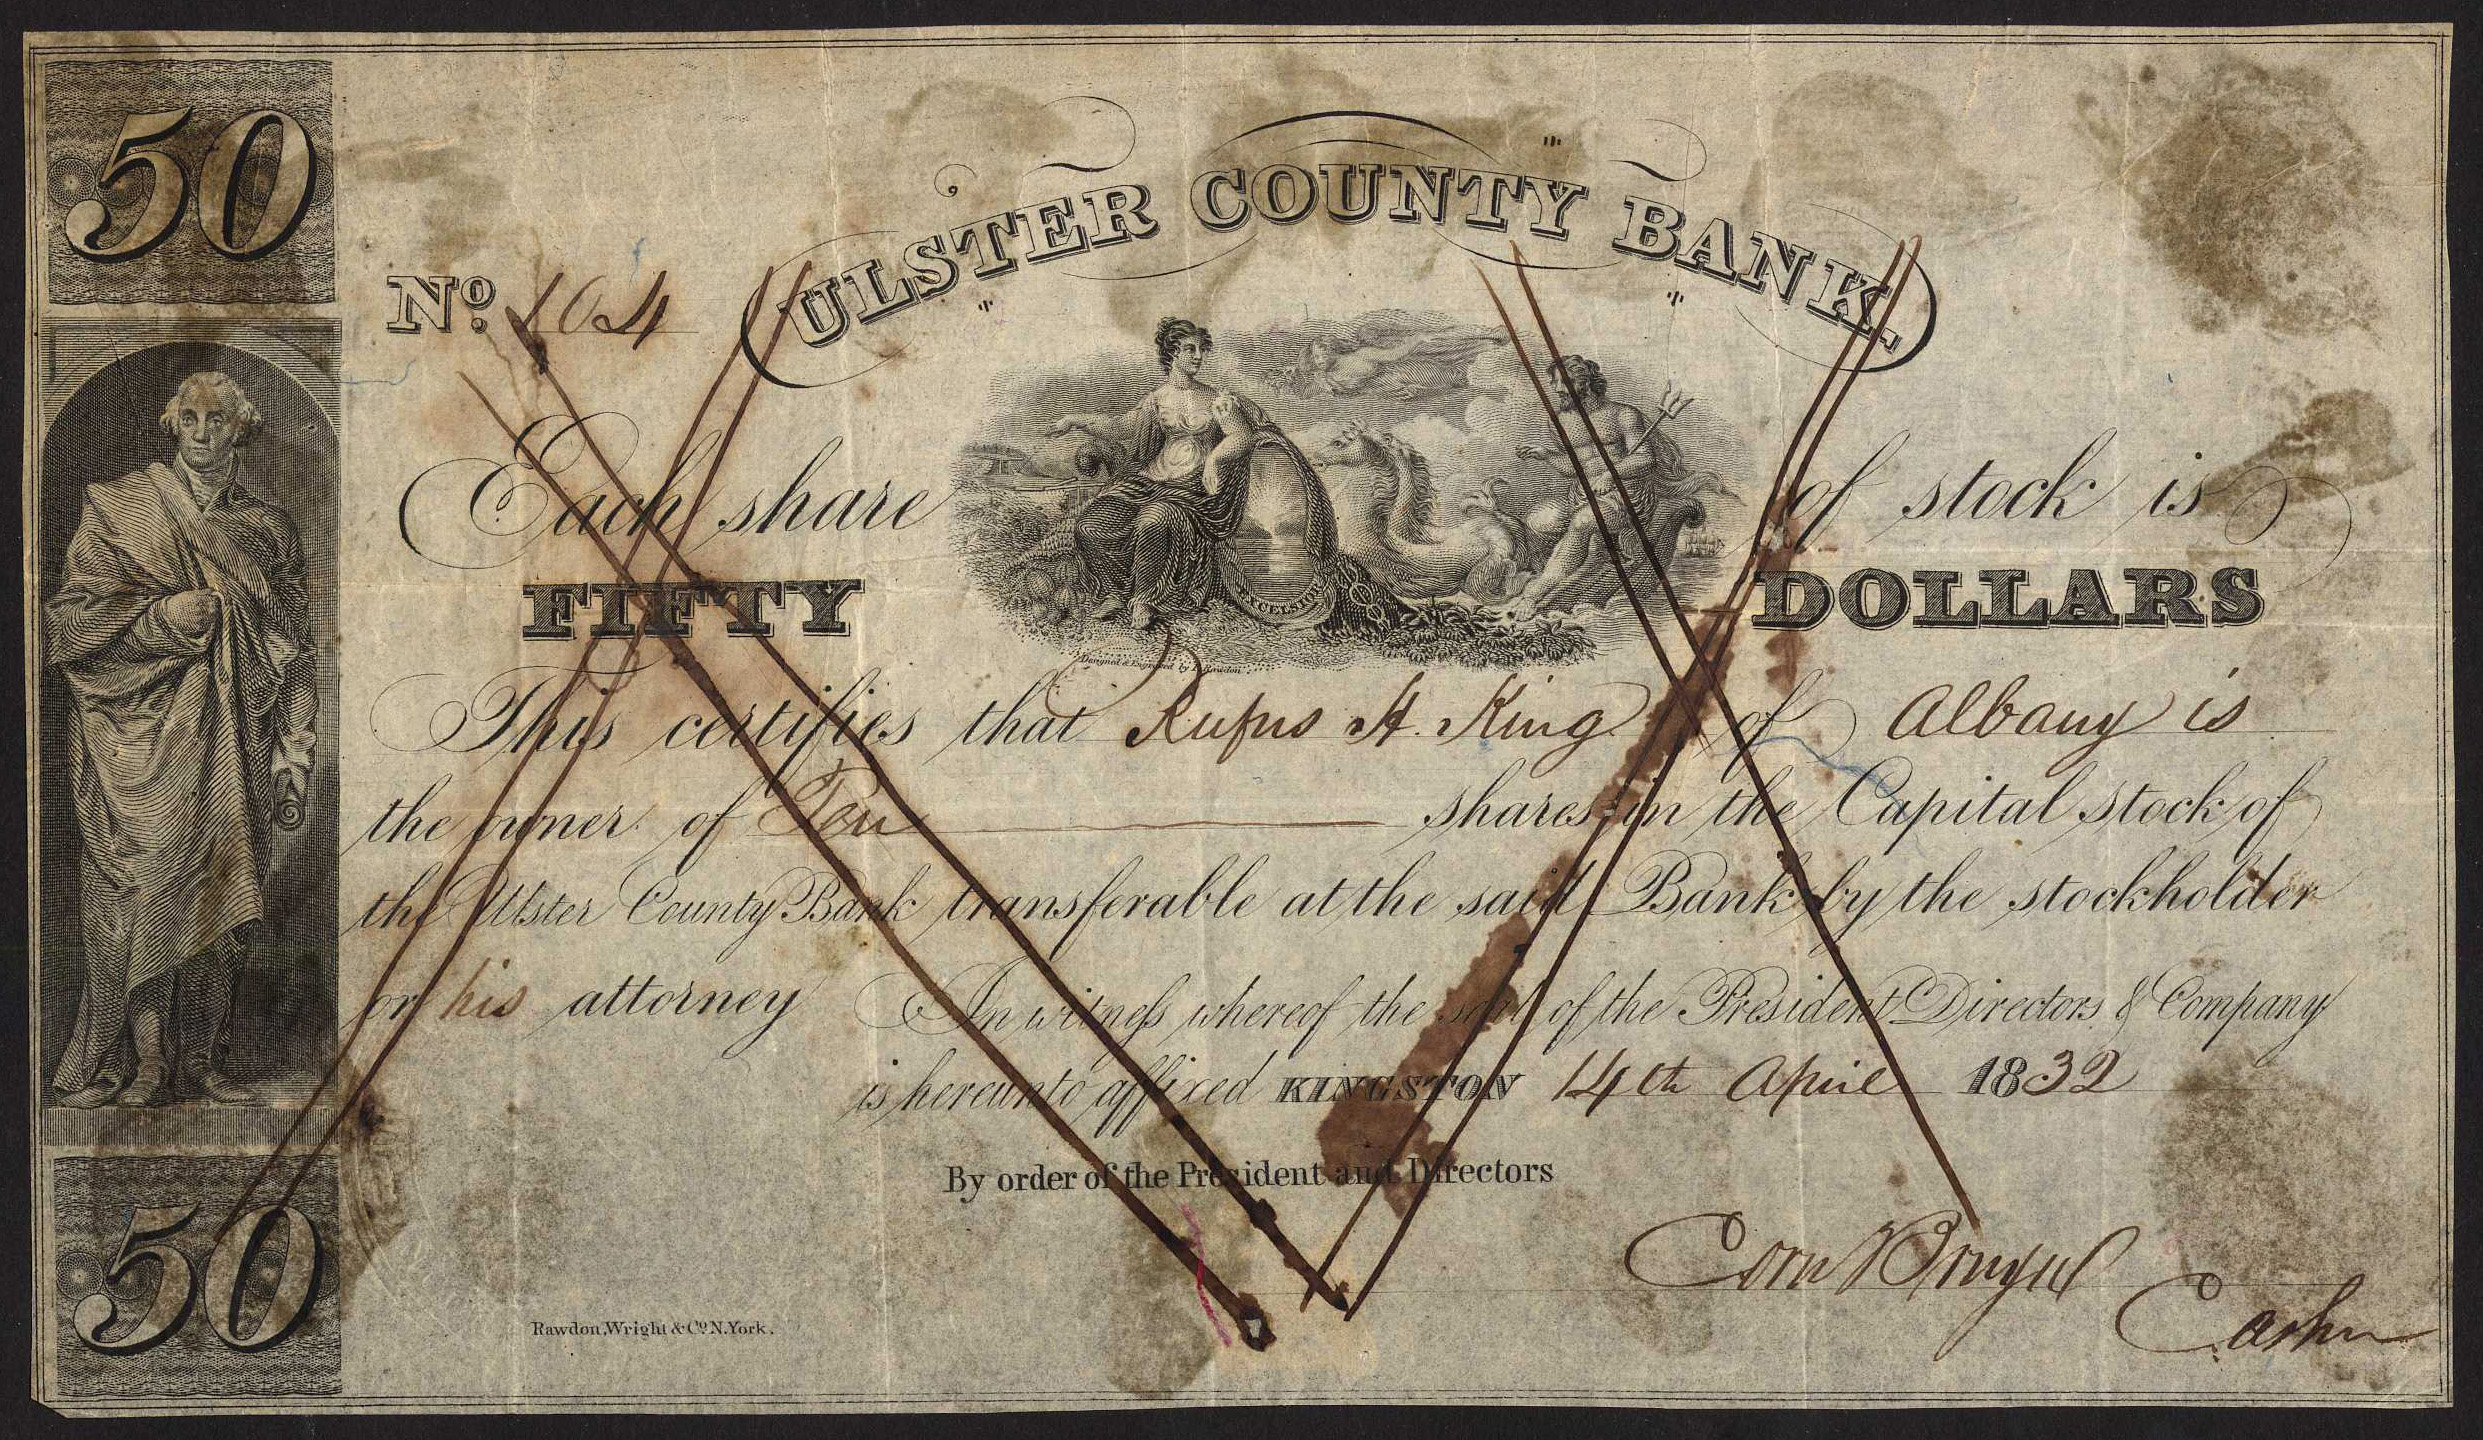 50
ULSTER COUNTY BANK.
No. 104
Each share of stock is
FIFTY DOLLARS
EXCELSIOR
Designed & Engraved by F. Rawdon
This certifies that Rufus H. King of Albany is
the owner of Ten shares in the Capital stock of
the Ulster County Bank transferable at the said Bank by the stockholder
or his attorney In witness whereof the seal of the President Directors & Company
is hereunto affixed KINGSTON 14th April 1832
By order of the President and Directors
Corn Bruyn
Cashr
50
Rawdon, Wright & Co. N. York.